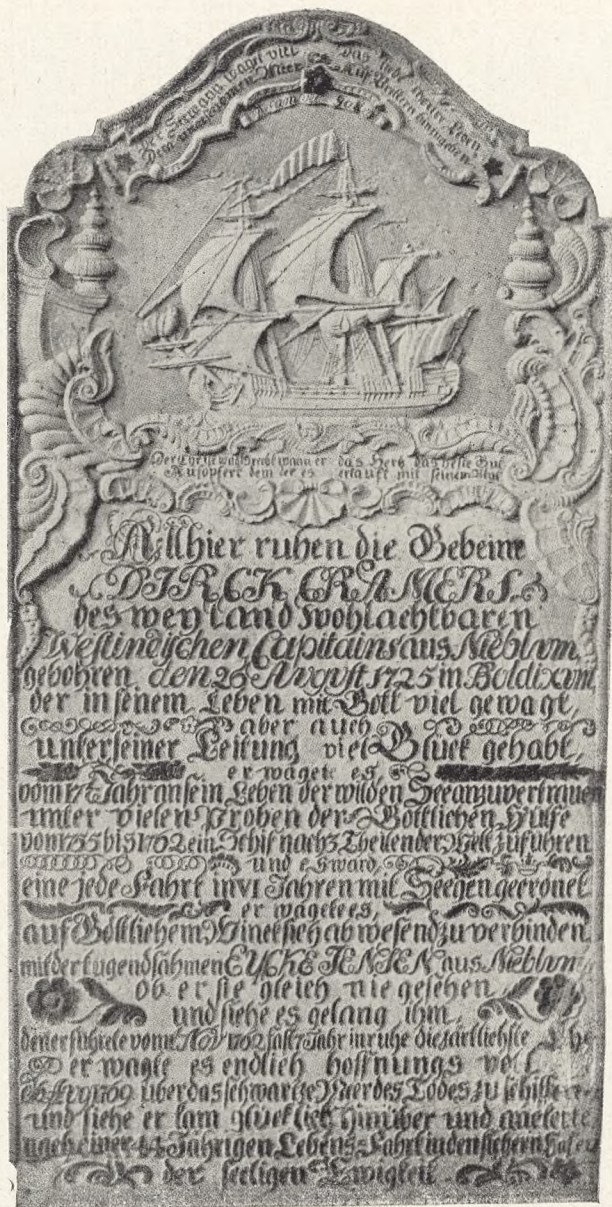 Der Seemann waget viel
Dem ungestümen Meer
das sehr theure Leben
Auf Wellen hinzugeben
Der Christ wagt recht wann er das Hertz das beste Gut
Aufopfert dem der es erkauft mit seinem Blut
Allhier ruhen die Gebeine
DIRCK CRAMERS
des weyland wohlachtbaren
Westindischen Capitains aus Nieblum,
gebohren den 26 Avgvst 1725 in Boldixvm,
der in seinem Leben mit Gott viel gewagt,
aber auch
unter seiner Leitung viel Glück gehabt,
er wagete es
vom 17 Jahr an sein Leben der wilden See anzuvertrauen
unter vielen Proben der Göttlichen Hülfe
von 1755 bis 1762 ein Schif nach 3 Theilen der Welt zu führen
und es ward,
eine jede Fahrt in VI Jahren mit Seegen gecrönet
er wagete es,
auf Göttlichem Winck sich abwesend zu verbinden
mit der tugendsahmen EYCKE JENSEN aus Nieblum
ob er sie gleich nie gesehen
und siehe es gelang ihm,
den er führete vom Nov 1762 fast 7 Jahr in ruhe die zärtlichste
er wagte es endlich hoffnungs voll
1769 über das schwartze Meer des Todes zu schiffen
und siehe er kam glücklich hinüber und anckerte
44 Jährigen Lebens-Fahrt in den sichern Hafen
der seeligen Ewigkeit